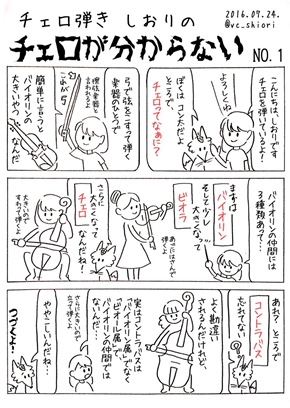 チェロ弾き しおりの
2016.09.24.
@vc_skiori
チェロが分からない NO.1
こんにちは、しおりです
チェロを弾いているよ!
よろしくね
ぼくはコンだよ
ところで、
チェロってなぁに?
弓で弦をこすって弾く
楽器のひとつで
擦弦楽器と
言われるよ
これが弓
簡単に言うと
バイオリンの
大きいやつ
なんだ
バイオリンの仲間には
3種類あって…
まずは
バイオリン
そして少し
大きくなって
ビオラ
さらに
大きくなって
チェロ
なんだね!
大きいので
すわって弾くよ
あれ?ところで
コントラバス
忘れてない?
よく勘違い
されるんだけれど、
実はコントラバスは
「バイオリン属」でなく
「ビオール属」で、
バイオリンの仲間では
ないんだ…
さらに大きいので
立って弾くよ
ややこしいんだね…
つづくよ!